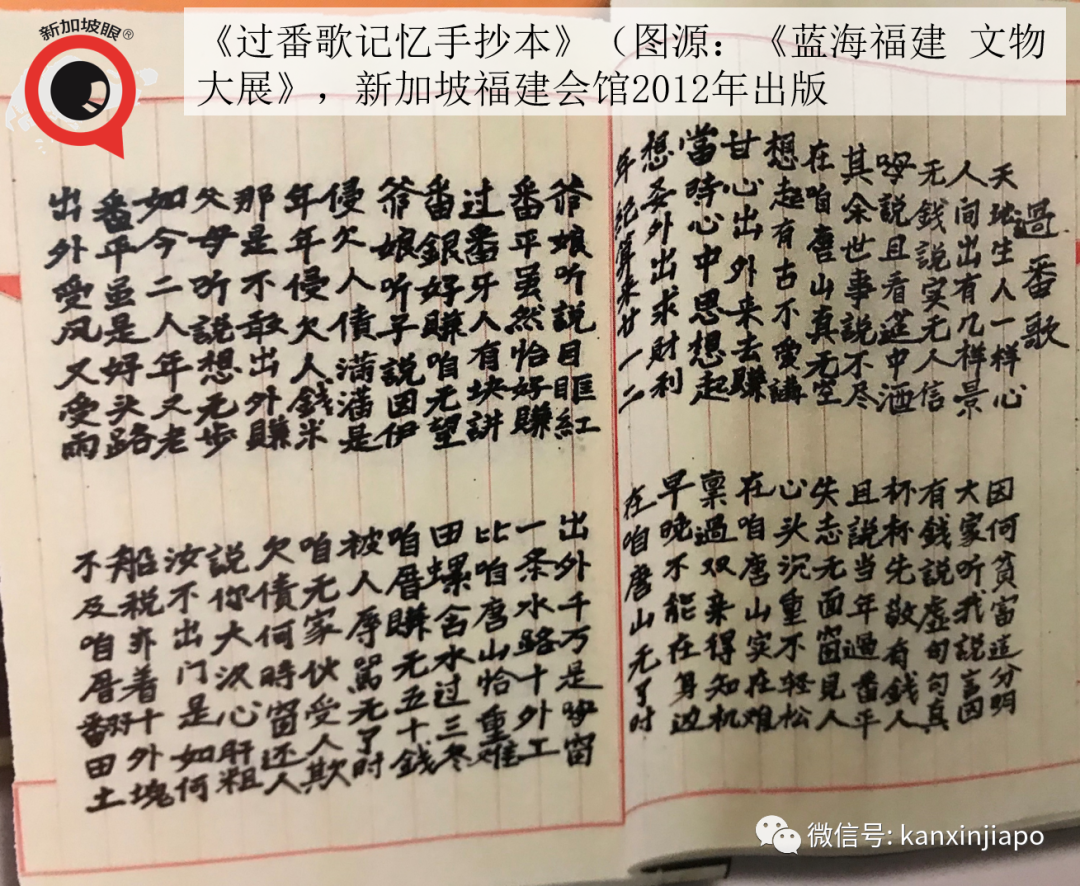 新加坡眼®
《过番歌记忆手抄本》（图源：《蓝海福建 文物
大展》，新加坡福建会馆2012年出版
過番歌
天地生人一样心
因何贫富造分明
人间出有几样景
大家听我説言因
无錢説实无人信
有錢説虚句句真
説且看筵中酒
杯杯先敬有錢人
其余世事説不尽
且説当年過番平
在咱唐山真无空
失志无面窗見人
想起有古不愛講
心头沉重不轻松
甘心出外来去賺
在咱唐山实在难
當時心中思想起
禀過双亲得知机
想妥外出求財利
早晚不能在身边
年纪算来廿一二
在咱唐山无了时
爷娘听説目眶紅
出外千万是窗
番平虽然怡好賺
一条水路十外工
过番牙人有块讲
比咱唐山恰重难
番銀好賺咱无望
田螺含水过三冬
爷娘听子説因伊
咱厝賺无五十錢
侵欠人債满潘是
被人辱骂无了时
年年侵欠人錢米
咱无家伙受人欺
那是不敢出外賺
欠債何時窗还人
父母听説想无步
説你大汉心肝粗
如今二人年又老
汝不出门是如何
番平虽是好头路
船税亦着十外塊
出外受风又受雨
不及咱厝翻田土
微信号: kanxinjiapo